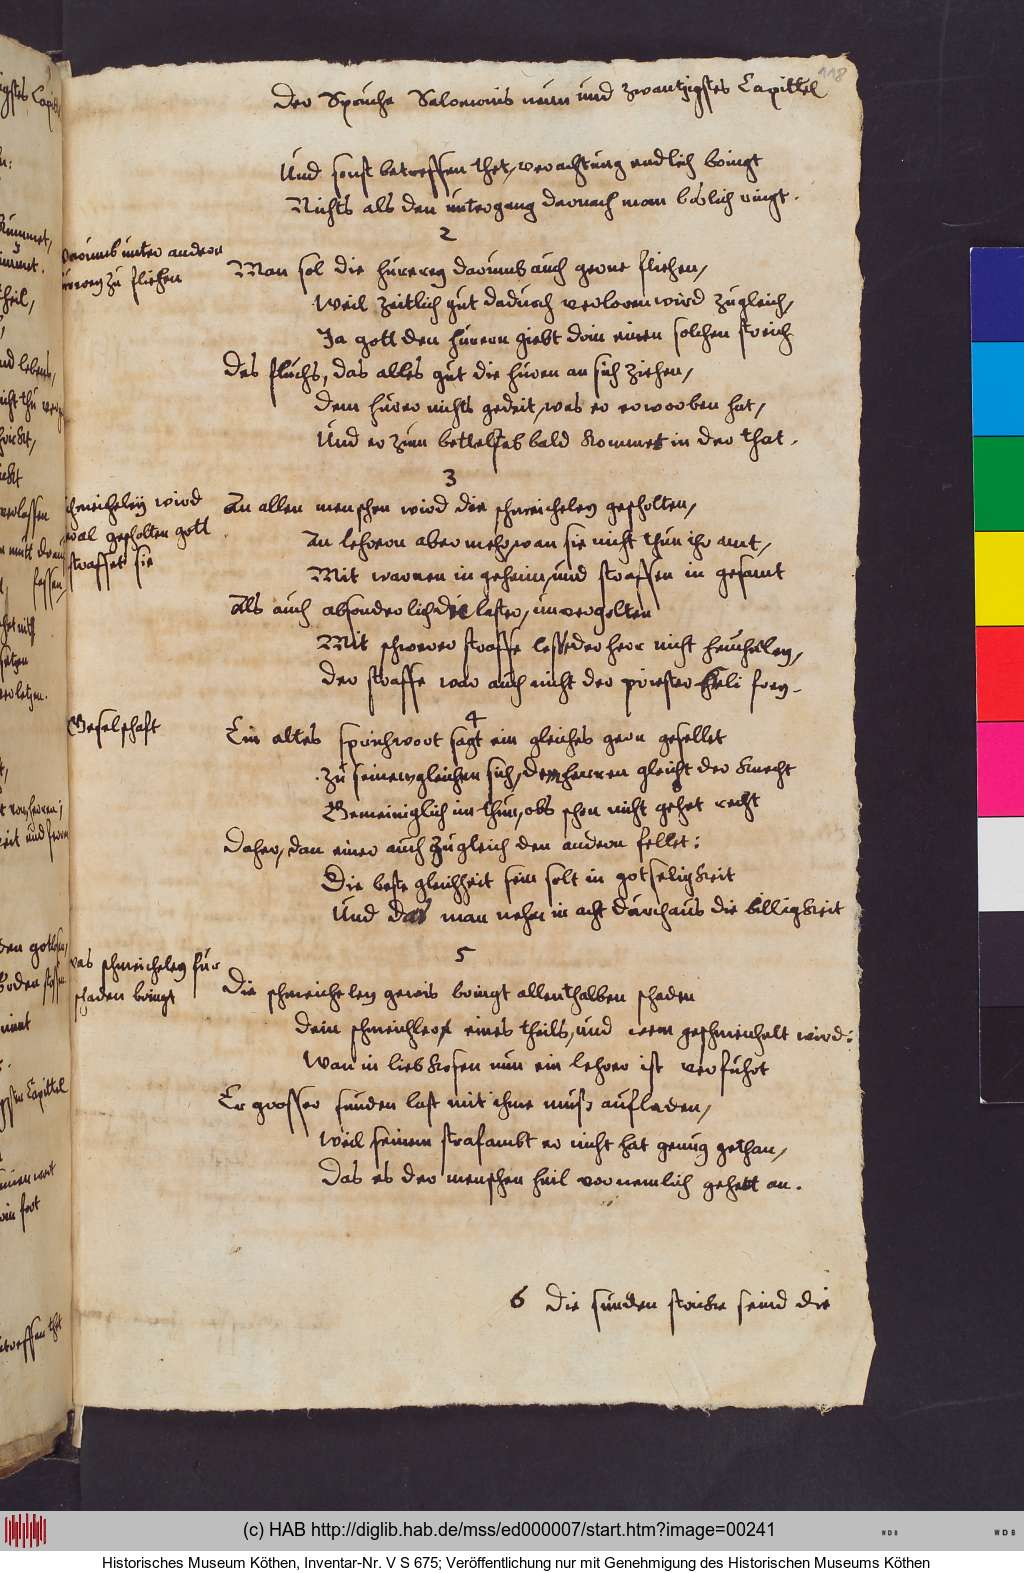 118
Der Sprüche Salomonis neun und zwantzigstes Capittel
Und sonst betreffen thet, verachtung endlich bringt
Nichts als den untergang darnach man bößlich ringt.
2
darumb unter andern
hurerey zu fliehen
Man sol die hurerey darumb auch gerne fliehen,
Weil zeitlich gut dadurch verloren wird zugleich,
Ja gott den hurern giebt drin einen solchen streich
Des fluchs, das alles gut die huren an sich ziehen,
Dem hurer nichts gedeit, was er erworben hat,
Und er zum bettelstab bald kommet in der that.
3
schmeicheley wird
wol gescholten gott
straffet sie
An allen menschen wird die schmeicheley gescholten,
An lehrern aber mehr, wan sie nicht thun ihr amt,
Mit warnen in geheim, und straffen in gesamt
Als auch absonderlich die laster, unvergolten
Mit schwerer straffe lesset der herr nicht heucheley,
Der straffe war auch nicht der priester Heli frey.
4
Geselschaft
Ein altes sprichwort sagt ein gleiches gern gesellet
Zu seinem gleichen sich, dem herren gleicht der knecht
Gemeiniglich im thun, obs schon nicht gehet recht
Daher, dan einer auch zugleich den andern fellet:
Die beste gleichheit sein solt in gotseligkeit
Und das man nehm in acht durchaus die billigkeit
5
was schmeicheley für
schaden bringt
Die schmeicheley gewis bringt allenthalben schaden
Dem schmeichler eines theils, und wem geschmeichelt wird:
Wan in liebkosen nun ein lehrer ist verführt
Er grosser sunden last mit ihme muß aufladen,
Weil seinem strafambt er nicht hat genug gethan,
Das es der menschen heil vornemlich gehett an.
6 Die sunden stricke seind die
(c) HAB http://diglib.hab.de/mss/ed000007/start.htm?image=00241
WDB
WDB
Historisches Museum Köthen, Inventar-Nr. V S 675; Veröffentlichung nur mit Genehmigung des Historischen Museums Köthen